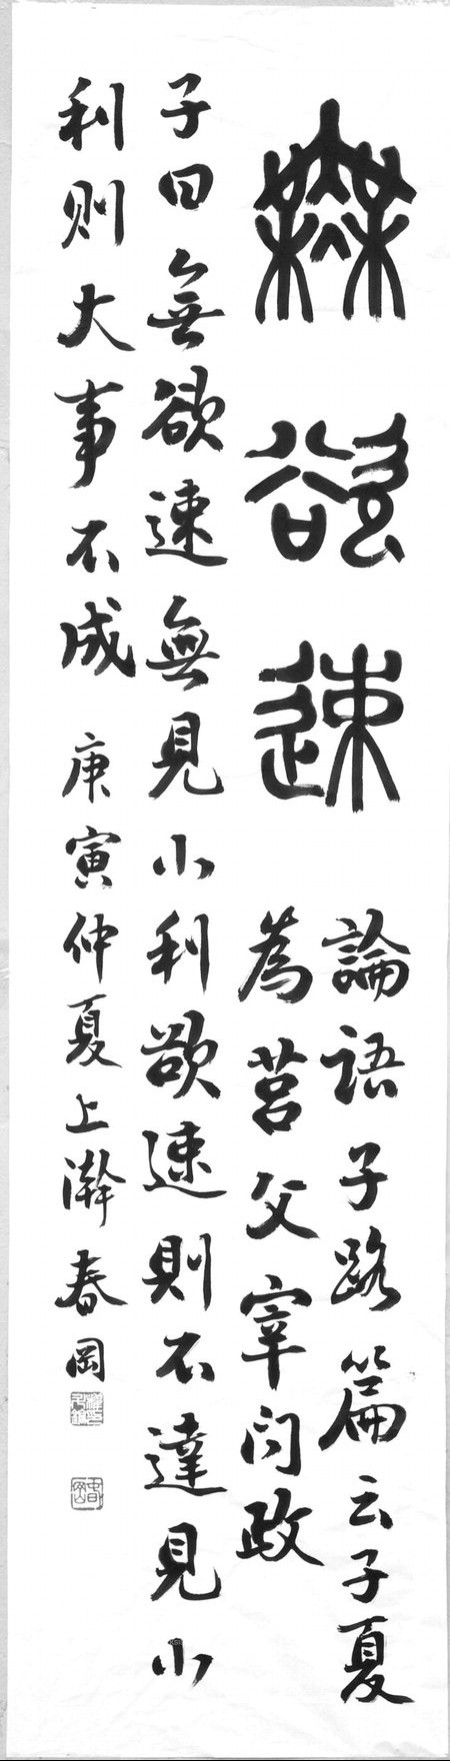 無欲速
論語子路篇云子夏
為莒父宰問政
子曰無欲速無見小利欲速則不達見小
利則大事不成 庚寅仲夏上澣 春岡